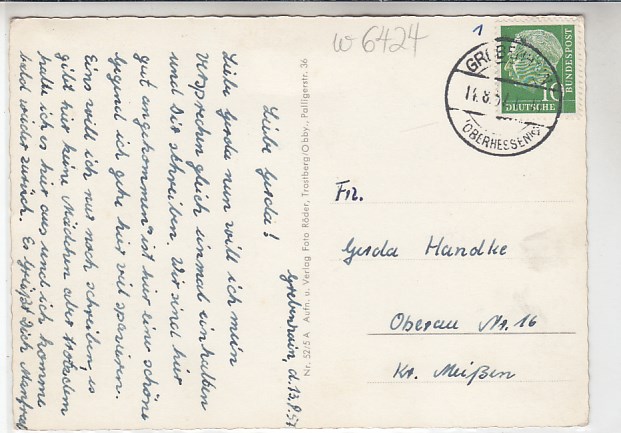 w 6424
1
GREBENHAIN
(OBERHESSEN)
DEUTSCHE
BUNDESPOST
10
Grebenhain, d. 13.8.57
Liebe Gerda!
Liebe Gerda nun will ich mein
Versprechen gleich einmal einhalten
und Dir schreiben. Wir sind hier
gut angekommen, ist hier eine schöne
Gegend ich gehe hier viel spazieren.
Eins will ich nur noch schreiben, es
gibt hier keine Mädchen aber trotzdem
halte ich es hier aus und ich komme
bald wieder zurück. Es Grüßt Dich Manfred
Nr. 52/5 A Aufn. u. Verlag Foto Röder, Trostberg/Obby., Palligerstr. 36
Frl.
Gerda Handke
Oberau Nr. 16
Kr. Meißen